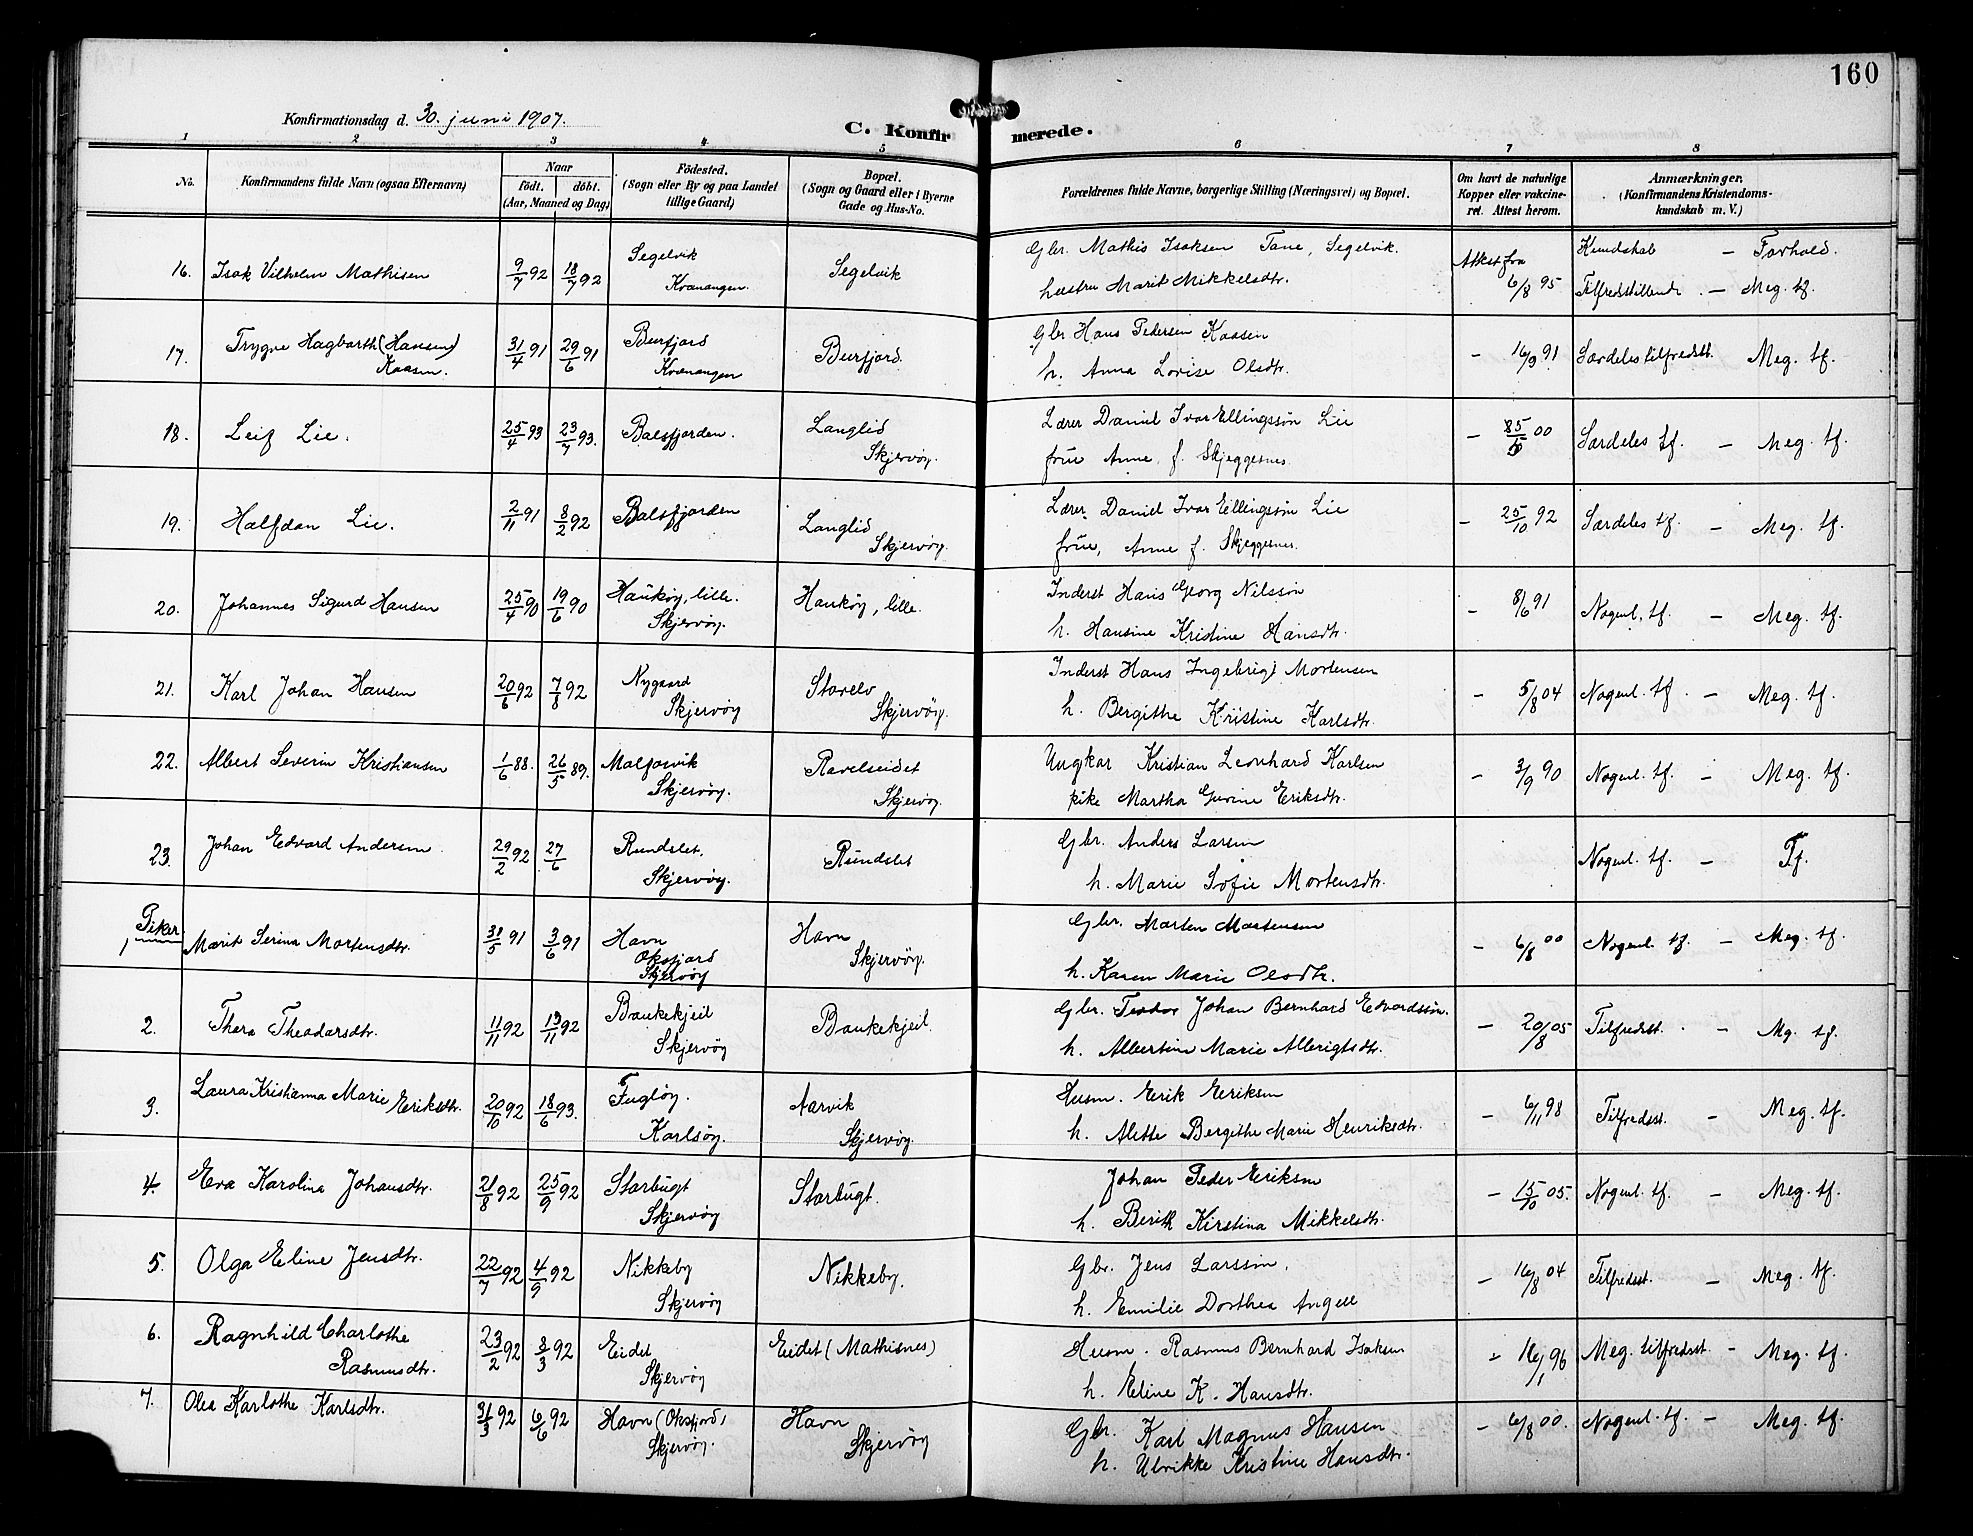 160
Konfirmationsdag d. 30. juni 1907.
C. Konfirmerede.
1 2 3 4 5 6 7 8
No. Konfirmandens fulde Navn (ogsaa Efternavn) Naar födt. döbt. (Aar, Maaned og Dag) Födested. (Sogn eller By og paa Landet tillige Gaard) Bopæl. (Sogn og Gaard eller i Byerne Gade og Hus-No. Forældrenes fulde Navne, borgerlige Stilling (Næringsvei) og Bopæl. Om havt de naturlige Kopper eller vakcineret. Attest herom. Anmærkninger. (Konfirmandens Kristendomskundskab m. V.)
16. Isak Vilhelm Mathisen 9/7 92 18/7 92 Segelvik Kvænangen. Segelvik Gbr. Mathis Isaksen Tane, Segelvik. Attest fra Kundskab – Forhold.
hustru Marit Mikkelsdtr. 6/8 95 Tilfredstillende. – Meg. tf.
17. Trygve Hagbarth (Hansen) Kaasen. 31/4 91 29/6 91 Burfjord Kvænangen Burfjord. Gbr. Hans Pedersen Kaasen
h. Anna Lovise Olsdtr. – 16/9 91 Særdeles tilfredsst. Meg. tf.
18. Leif Lie. 25/4 93 23/7 93. Balsfjorden. Langlid Skjervøy. Lærer Daniel Ivar Ellingssøn Lie
frue Anne f. Skjeggesnes. – 00 Særdeles tf. – Meg. tf.
19. Halfdan Lie. 2/11 91 8/2 92 Balsfjorden Langlid Skjervøy. Lærer. Daniel Ivar Ellingssøn Lie
frue, Anne f. Skjeggesnes. – 25/10 92 Særdeles tf. – Meg. tf.
20. Johannes Sigurd Hansen 25/4 90 19/6 90 Haukøy, lille. Skjervøy. Haukøy, lille. Inderst Hans Georg Nilssøn
h. Hansine Kristine Hansdtr. – 8/6 91 Nogenl. tf. – Meg. tf.
21. Karl Johan Hansen 20/6 92 7/8 92 Nygaard Skjervøy Storelv Skjervøy. Inderst Hans Ingebrigt Mortensen
h. Bergithe Kristine Karlsdtr. – 5/8 04 Nogenl. tf. – Meg. tf.
22. Albert Severin Kristiansen 1/6 88. 26/5 89. Malfarvik Skjervøy. Ravelseidet Skjervøy. Ungkar Kristian Leonhard Karlsen
pike Martha Gurine Eriksdtr. – 3/9 90 Nogenl. tf. – Meg. tf.
23. Johan Edvard Andersen 29/2 92 27/6 Rundslet, Skjervøy. Rundslet Gbr. Anders Larsen
h. Marie Sofie Mortensdtr. Nogenl. tf. – Tf.
Piker
1 Marit Serina Mortensdtr. 31/5 91 3/6 91 Havn Oksfjord Skjervøy Havn Skjervøy. Gbr. Morten Mortensen
h. Karen Marie Olsdtr. – 6/8 00 Nogenl. tf. – Meg. tf.
2. Thera Theodorsdtr. 11/11 92 13/11 92 Baukekjeil Skjervøy Baukekjeil. Gbr. Teodor Johan Bernhard Edvardssøn.
h. Albertine Marie Albrigtsdtr. – 20/8 05 Tilfredsst. – Mg. tf.
3. Laura Kristianna Marie Eriksdtr. 20/10 92 18/6 93. Fugløy. Karlsøy. Aarvik Skjervøy. Husm. Erik Eriksen
h. Alette Bergithe Marie Henriksdtr. – 6/11 98 Tilfredsst. – Meg. tf.
4. Eva Karolina Johansdtr. 21/8 92 25/9 92 Storbugt Skjervøy Storbugt. Johan Peder Eriksen
h. Berith Kirstina Mikkelsdtr. – 15/10 05. Nogenl. tf. – Meg. tf.
5. Olga Eline Jensdtr. 22/7 92 4/9 92 Nikkeby Skjervøy Nikkeby. Gbr. Jens Larssøn.
h. Emilie Dorthea Angell – 16/8 04 Tilfredsst. – Meg. tf.
6. Ragnhild Charlothe Rasmusdtr. 23/2 92 3/3 92 Eidet Skjervøy Eidet (Mathisnes) Husm. Rasmus Bernhard Isaksen
h. Eline K. Hansdtr. – 16/1 96 Meg. tilfredsst. – Meg. tf.
7. Olea Karlothe Karlsdtr. 31/3 92 6/6 92 Havn (Oksfjord) Skjervøy. Havn Skjervøy Gbr. Karl Magnus Hansen
h. Ulrikke Kristine Hansdtr. – 6/8 00. Nogenl. tf. – Meg. tf.